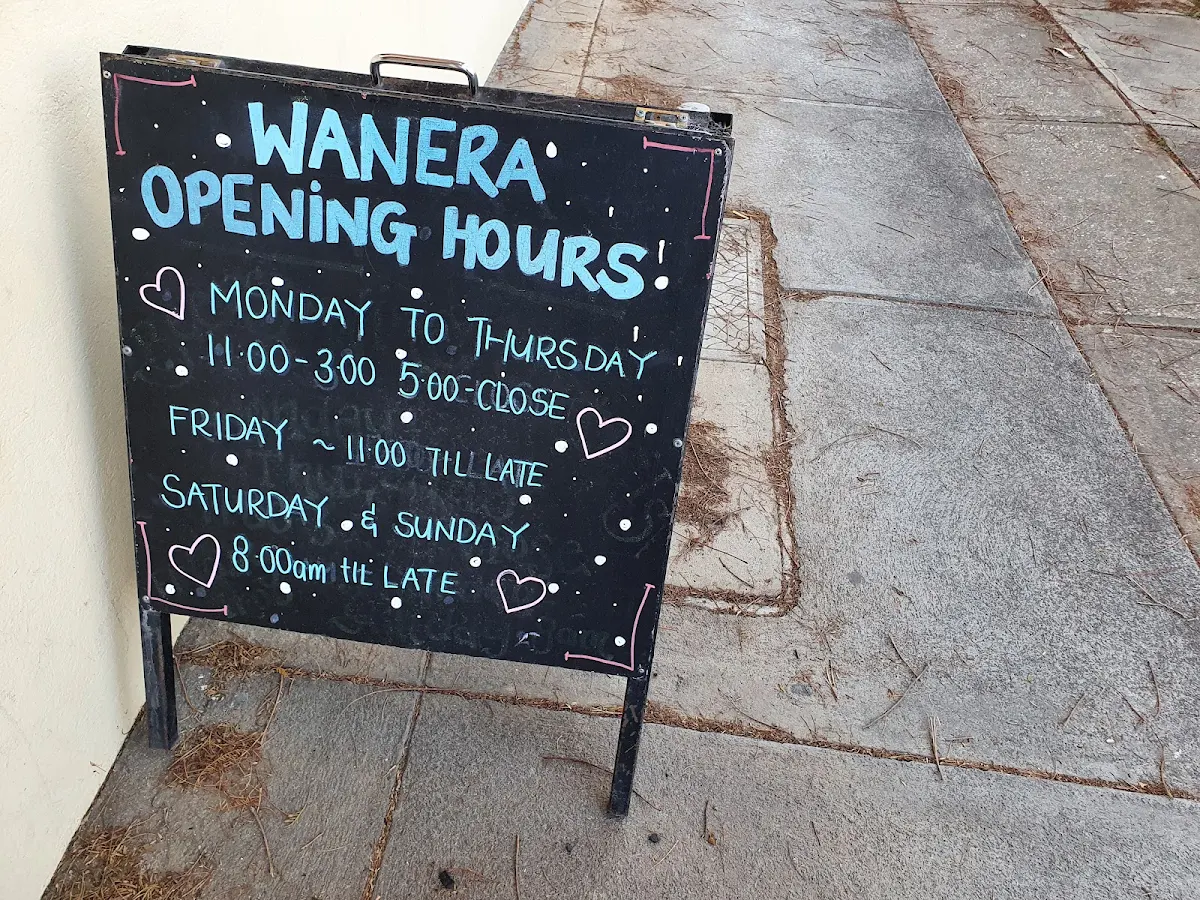 WANERA
OPENiNG HOURS
MONDAY TO THURSDAY
11·00-3·00 5·00-CLOSE
FRIDAY ~ 11·00 TIL LATE
SATURDAY & SUNDAY
8·00am tIL LATE